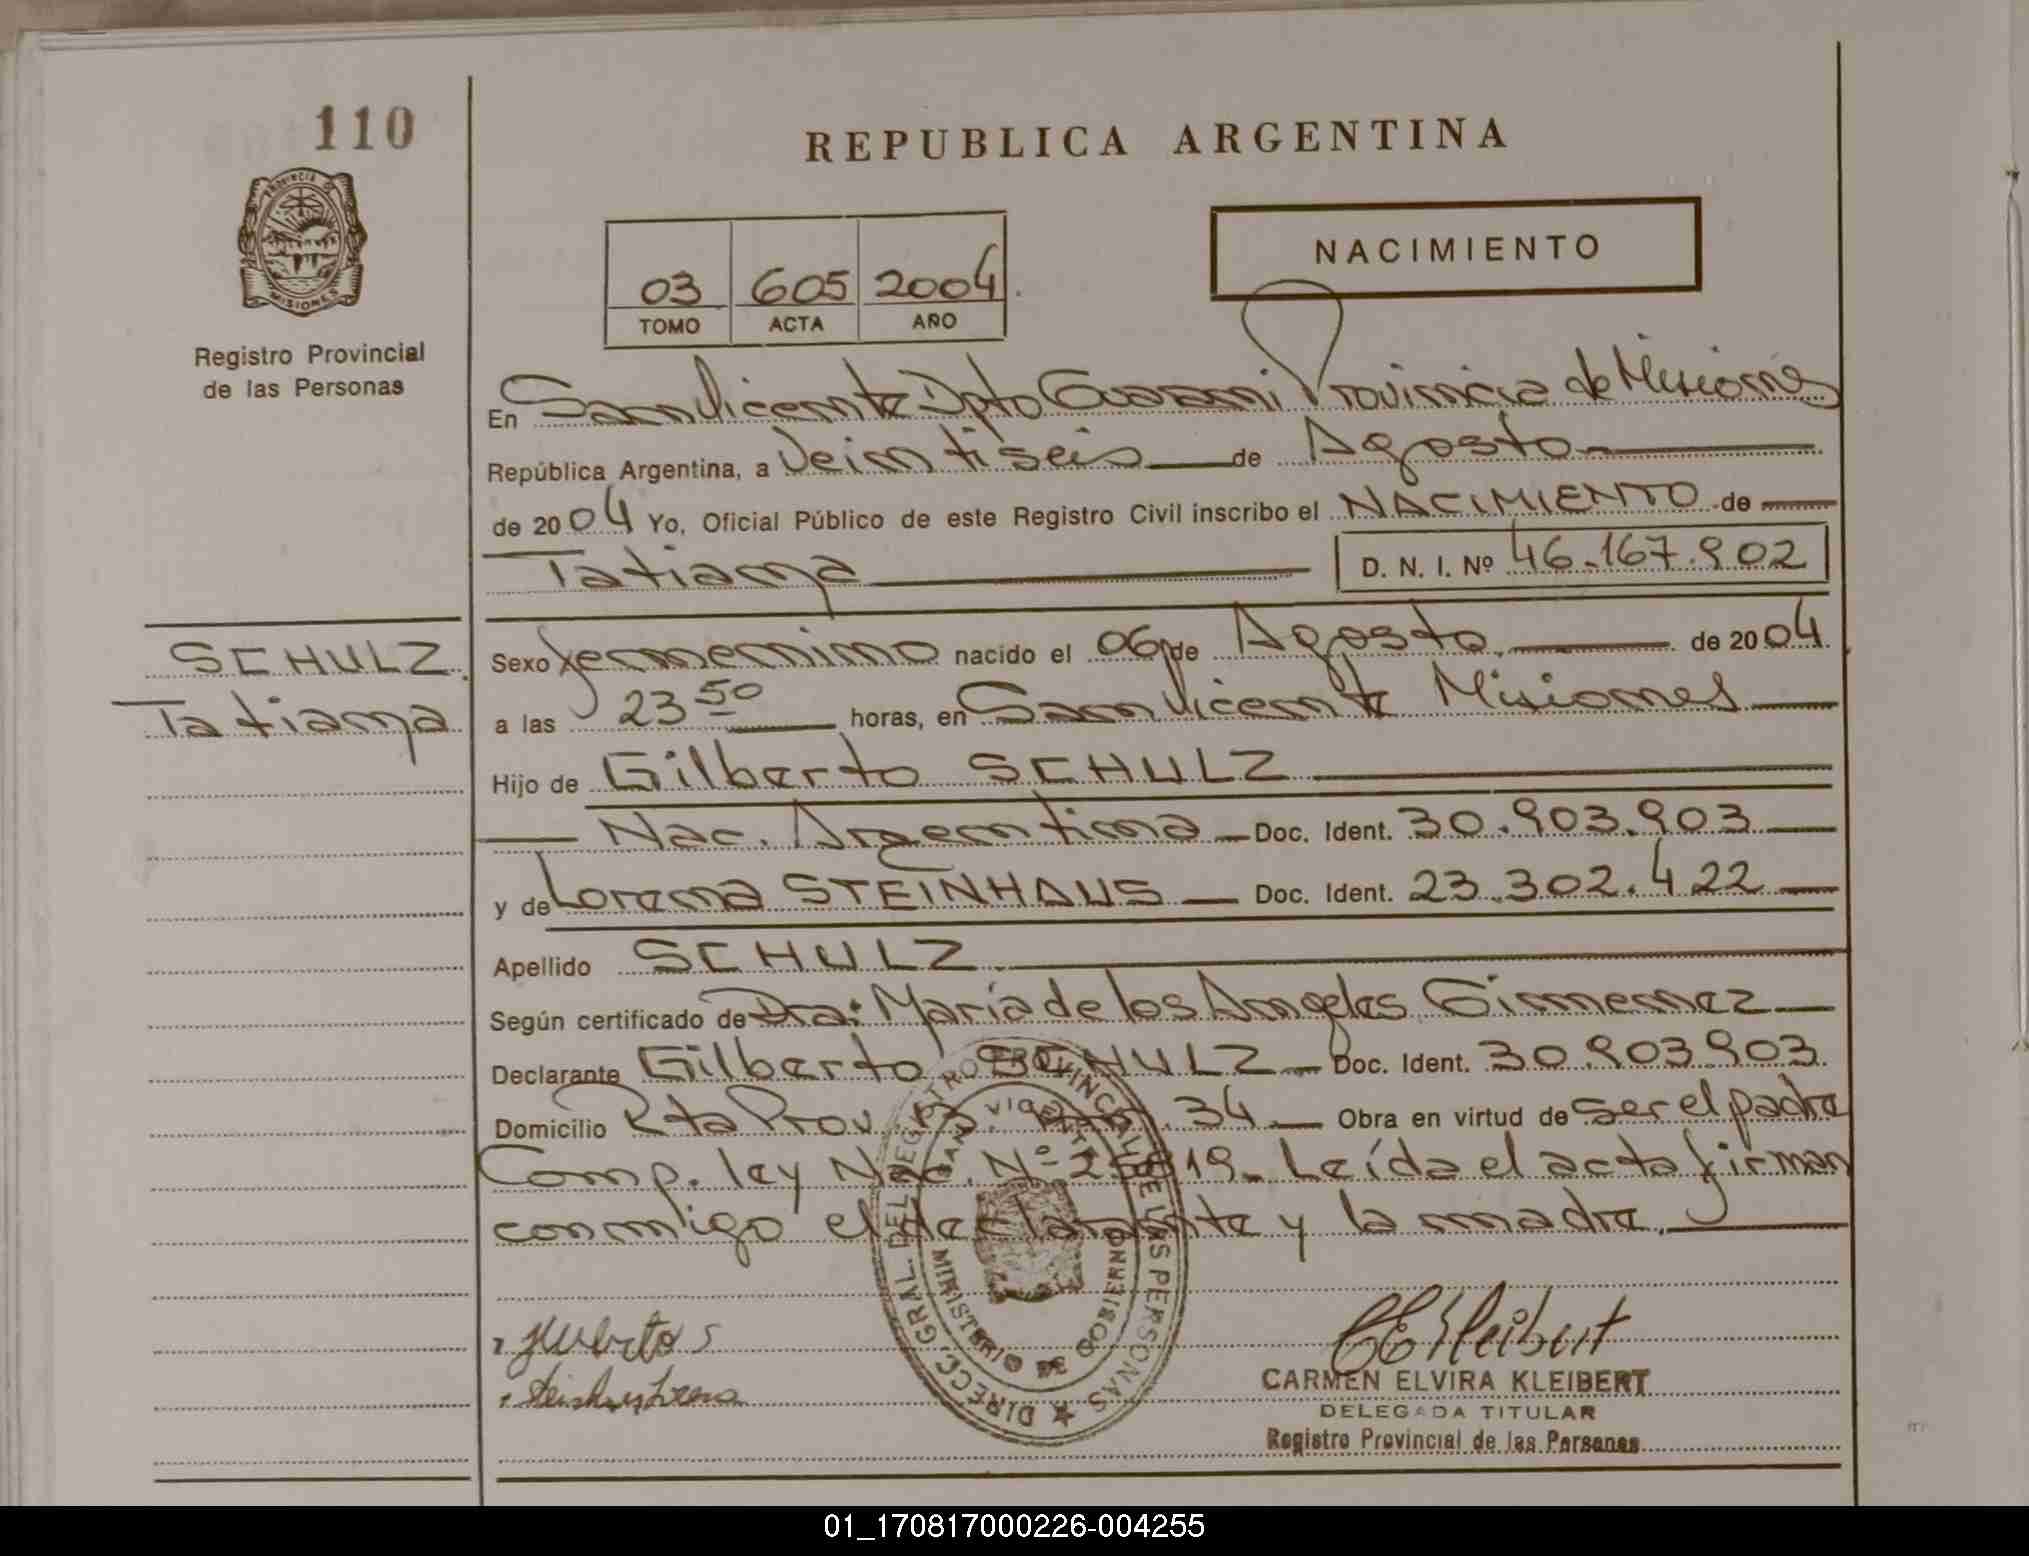 110
REPUBLICA ARGENTINA
PROVINCIA DE
MISIONES
Registro Provincial
de las Personas
NACIMIENTO
03 605 2004
TOMO ACTA AÑO
En San Vicente Dpto Guarani Provincia de Misiones
República Argentina, a Veintiseis de Agosto
de 2004 Yo, Oficial Público de este Registro Civil inscribo el NACIMIENTO de
Tatiana D. N. I. Nº 46.167.902
SCHULZ
Tatiana
Sexo femenino nacido el 06 de Agosto de 2004
a las 23 50 horas, en San Vicente Misiones
Hijo de Gilberto SCHULZ
Nac. Argentina Doc. Ident. 30.903.903
y de Lorena STEINHAUS Doc. Ident. 23.302.422
Apellido SCHULZ
Según certificado de Dra: María de los Angeles Gimenez
Declarante Gilberto SCHULZ Doc. Ident. 30.903.903
Domicilio Rta Prov. 34 Obra en virtud de ser el padre
Comp. ley Nac. Nº 19 Leída el acta firman
conmigo el declarante y la madre.
DIRECC. GRAL. DEL REGISTRO PROVINCIAL DE LAS PERSONAS
SAN VICENTE
MINISTERIO DE GOBIERNO
CARMEN ELVIRA KLEIBERT
DELEGADA TITULAR
Registro Provincial de las Personas
01_170817000226-004255